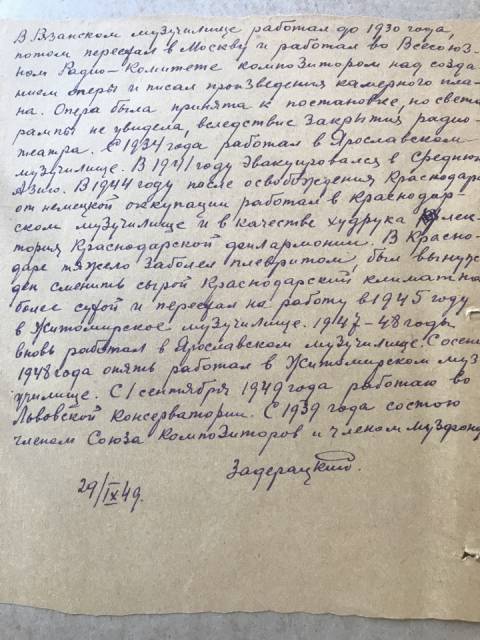 В Рязанском музучилище работал до 1930 года,
потом переехал в Москву и работал во Всесоюз-
ном Радио-Комитете композитором над созда-
нием оперы и писал произведения камерного пла-
на. Опера была принята к постановке, но света
рампы не увидела, вследствие закрытия радио-
театра. С 1934 года работал в Ярославском
музучилище. В 1941 году эвакуировался в Среднюю
Азию. В 1944 году после освобождения Краснодара
от немецкой оккупации работал в Краснодар-
ском музучилище и в качестве худрука лек-
тория Краснодарской филармонии. В Красно-
даре тяжело заболел плевритом, был вынуж-
ден сменить сырой Краснодарский климат на
более сухой и переехал на работу в 1945 году
в Житомирское музучилище. 1947-48 годы
вновь работал в Ярославском музучилище. С осени
1948 года опять работал в Житомирском муз-
училище. С 1 сентября 1949 года работаю во
Львовской Консерватории. С 1939 года состою
членом Союза Композиторов и членом Музфонда
Задерацкий.
29/IX 49.